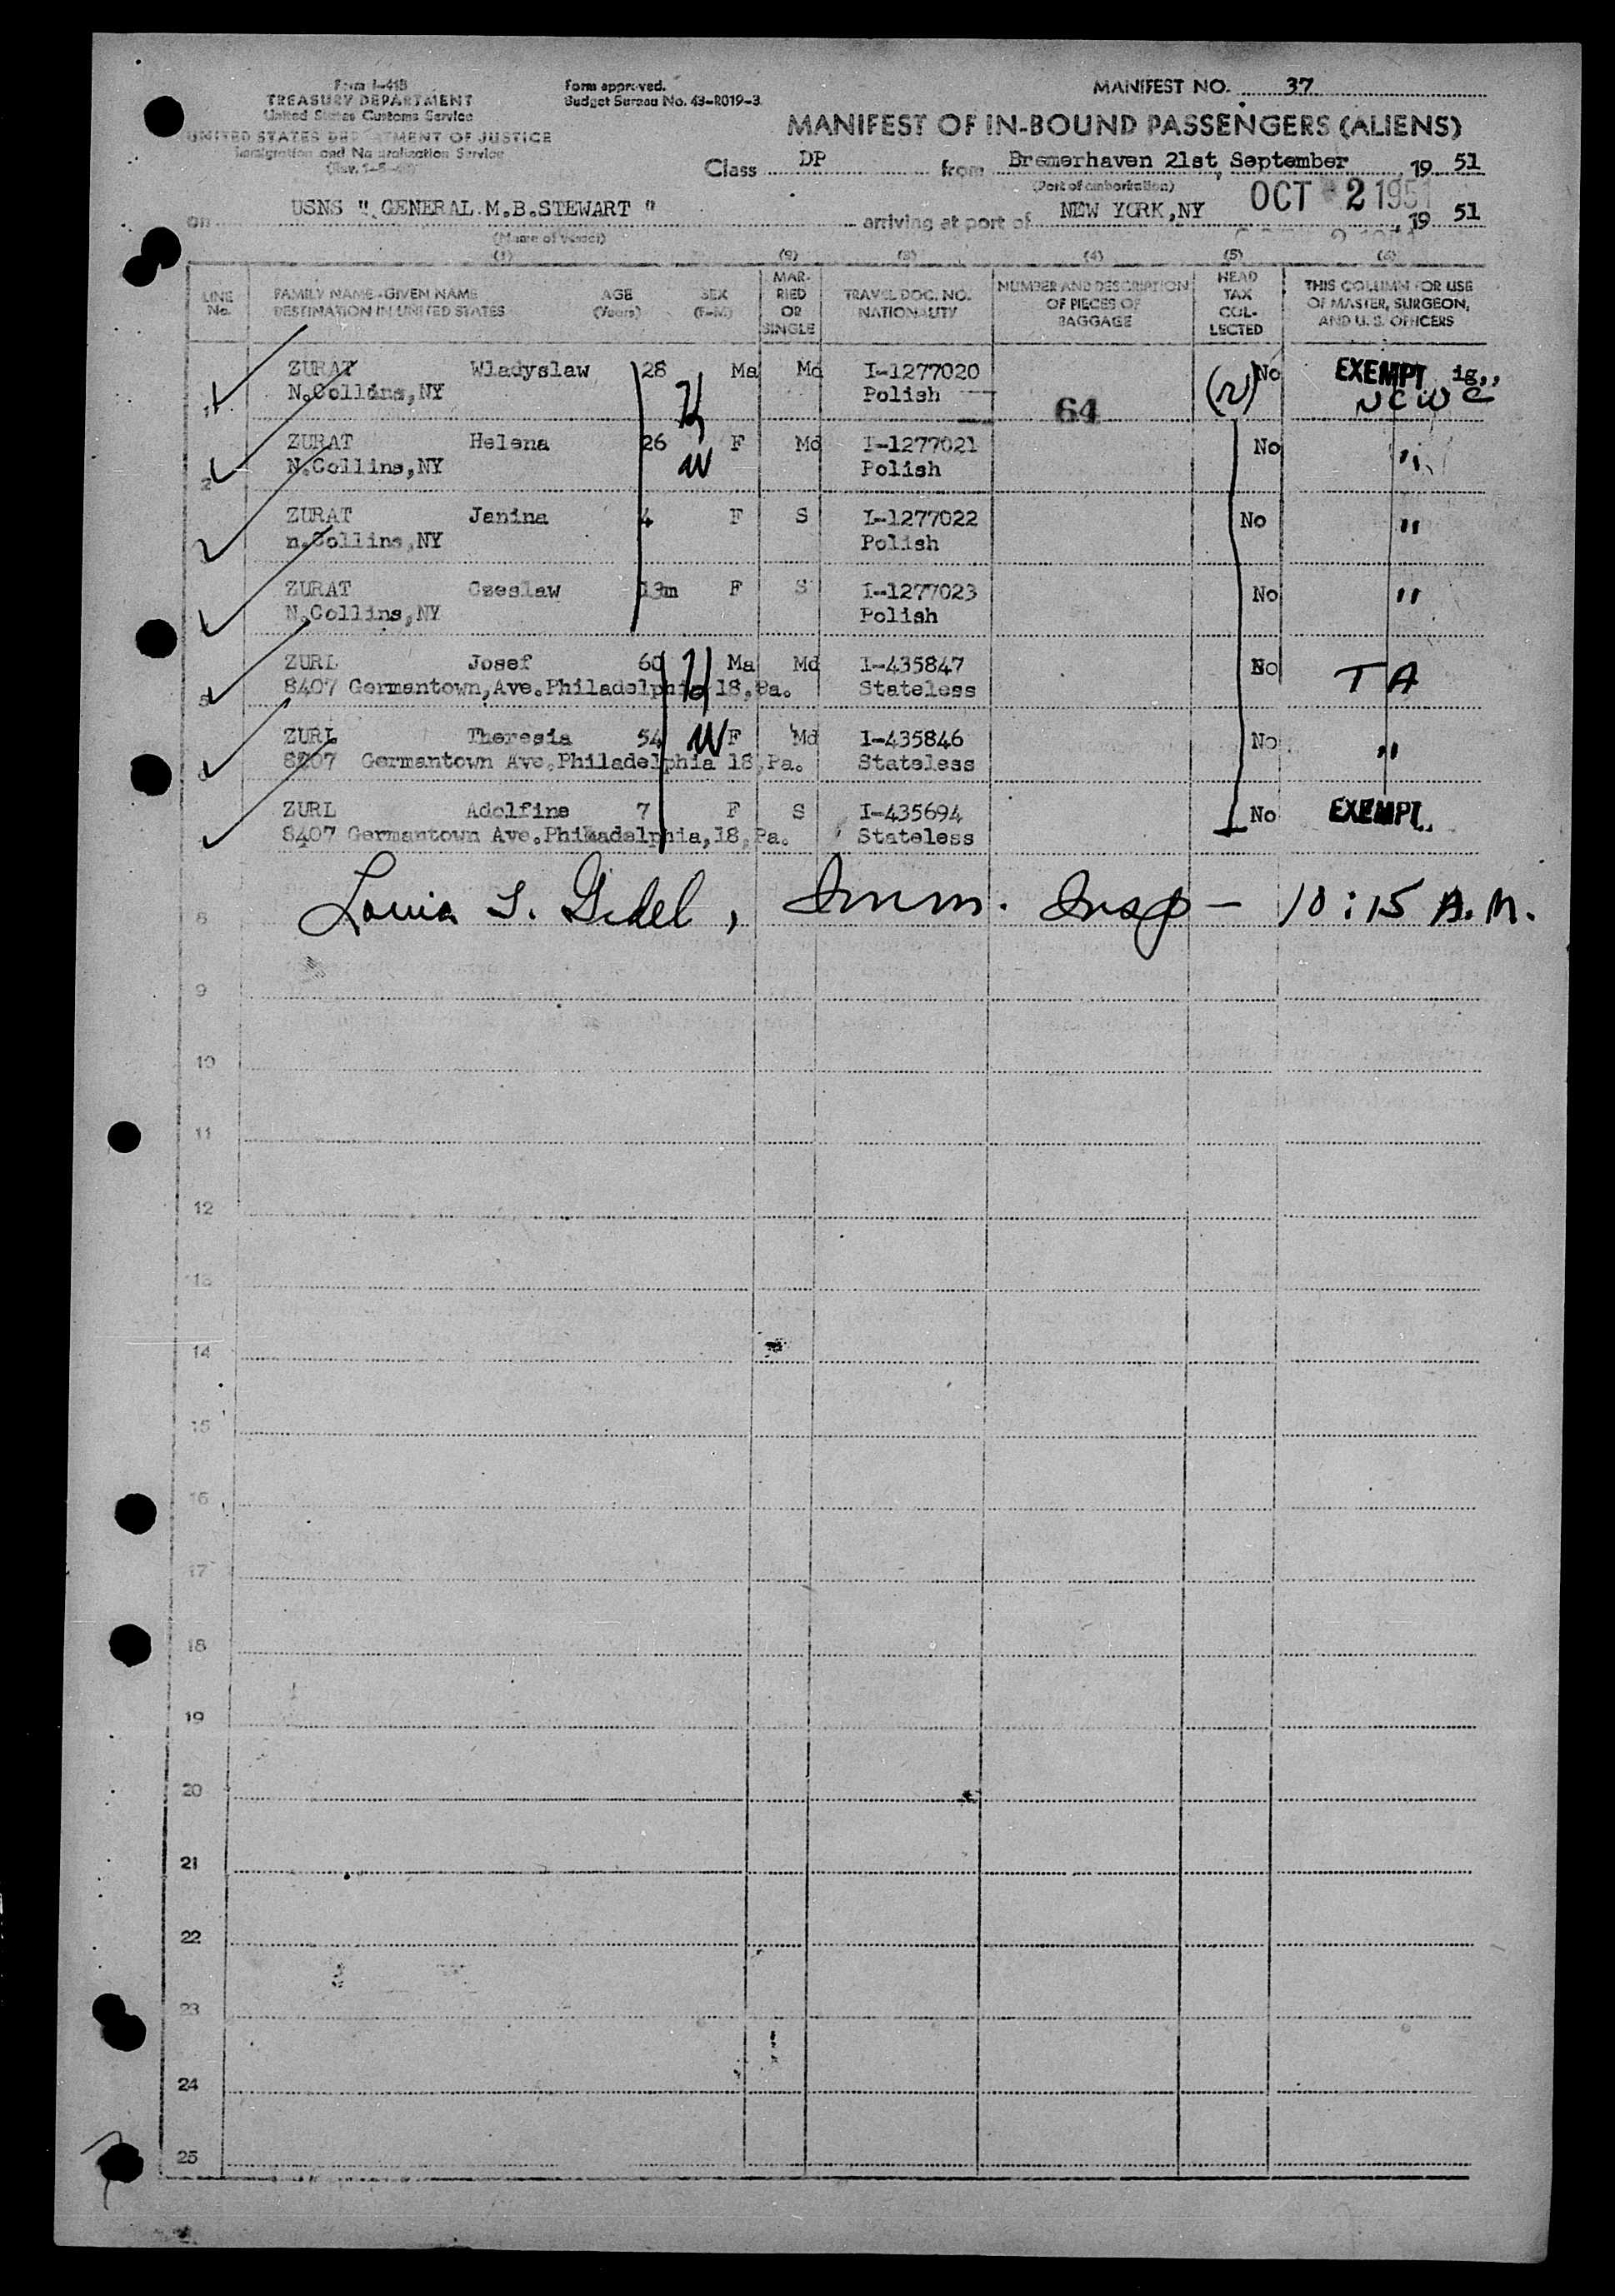 Form I-418
TREASURY DEPARTMENT
United States Customs Service
UNITED STATES DEPARTMENT OF JUSTICE
Immigration and Naturalization Service
Form approved.
Budget Bureau No. 43-R019-3.
MANIFEST NO. 37
MANIFEST OF IN-BOUND PASSENGERS (ALIENS)
Class DP from Bremerhaven 21st, September, 19 51
(Port of embarkation)
OCT 2 1951
on USNS "GENERAL M.B.STEWART" arriving at port of NEW YORK,NY, 19 51
(Name of vessel)
(1) (2) (3) (4) (5) (6)
LINE No. FAMILY NAME-GIVEN NAME DESTINATION IN UNITED STATES AGE (Years) SEX (F-M) MARRIED OR SINGLE TRAVEL DOC. NO. NATIONALITY NUMBER AND DESCRIPTION OF PIECES OF BAGGAGE HEAD TAX COLLECTED THIS COLUMN FOR USE OF MASTER, SURGEON, AND U. S. OFFICERS
1 ZURAT Wladyslaw 28 H Ma Md I-1277020 No EXEMPT ig,,
N.Collins,NY Polish 64 (N) NCWC
2 ZURAT Helena 26 F Md I-1277021 No "
N.Collins,NY W Polish
ZURAT Janina 4 F S I-1277022 No "
n.Collins,NY Polish
ZURAT Czeslaw 13m F S I-1277023 No "
N.Collins,NY Polish
ZURL Josef 60 H Ma Md I-435847 No T A
5 8407 Germantown,Ave.Philadelphia 18,Pa. Stateless
ZURL Theresia 54 W F Md I-435846 No "
6 8207 Germantown Ave.Philadelphia 18,Pa. Stateless
ZURL Adolfine 7 F S I-435694 No EXEMPT
8407 Germantown Ave.Philadelphia,18,Pa. Stateless
8 Louis S. Gidel, Imm. Insp - 10:15 A.M.
9
10
11
12
13
14
15
16
17
18
19
20
21
22
23
24
25